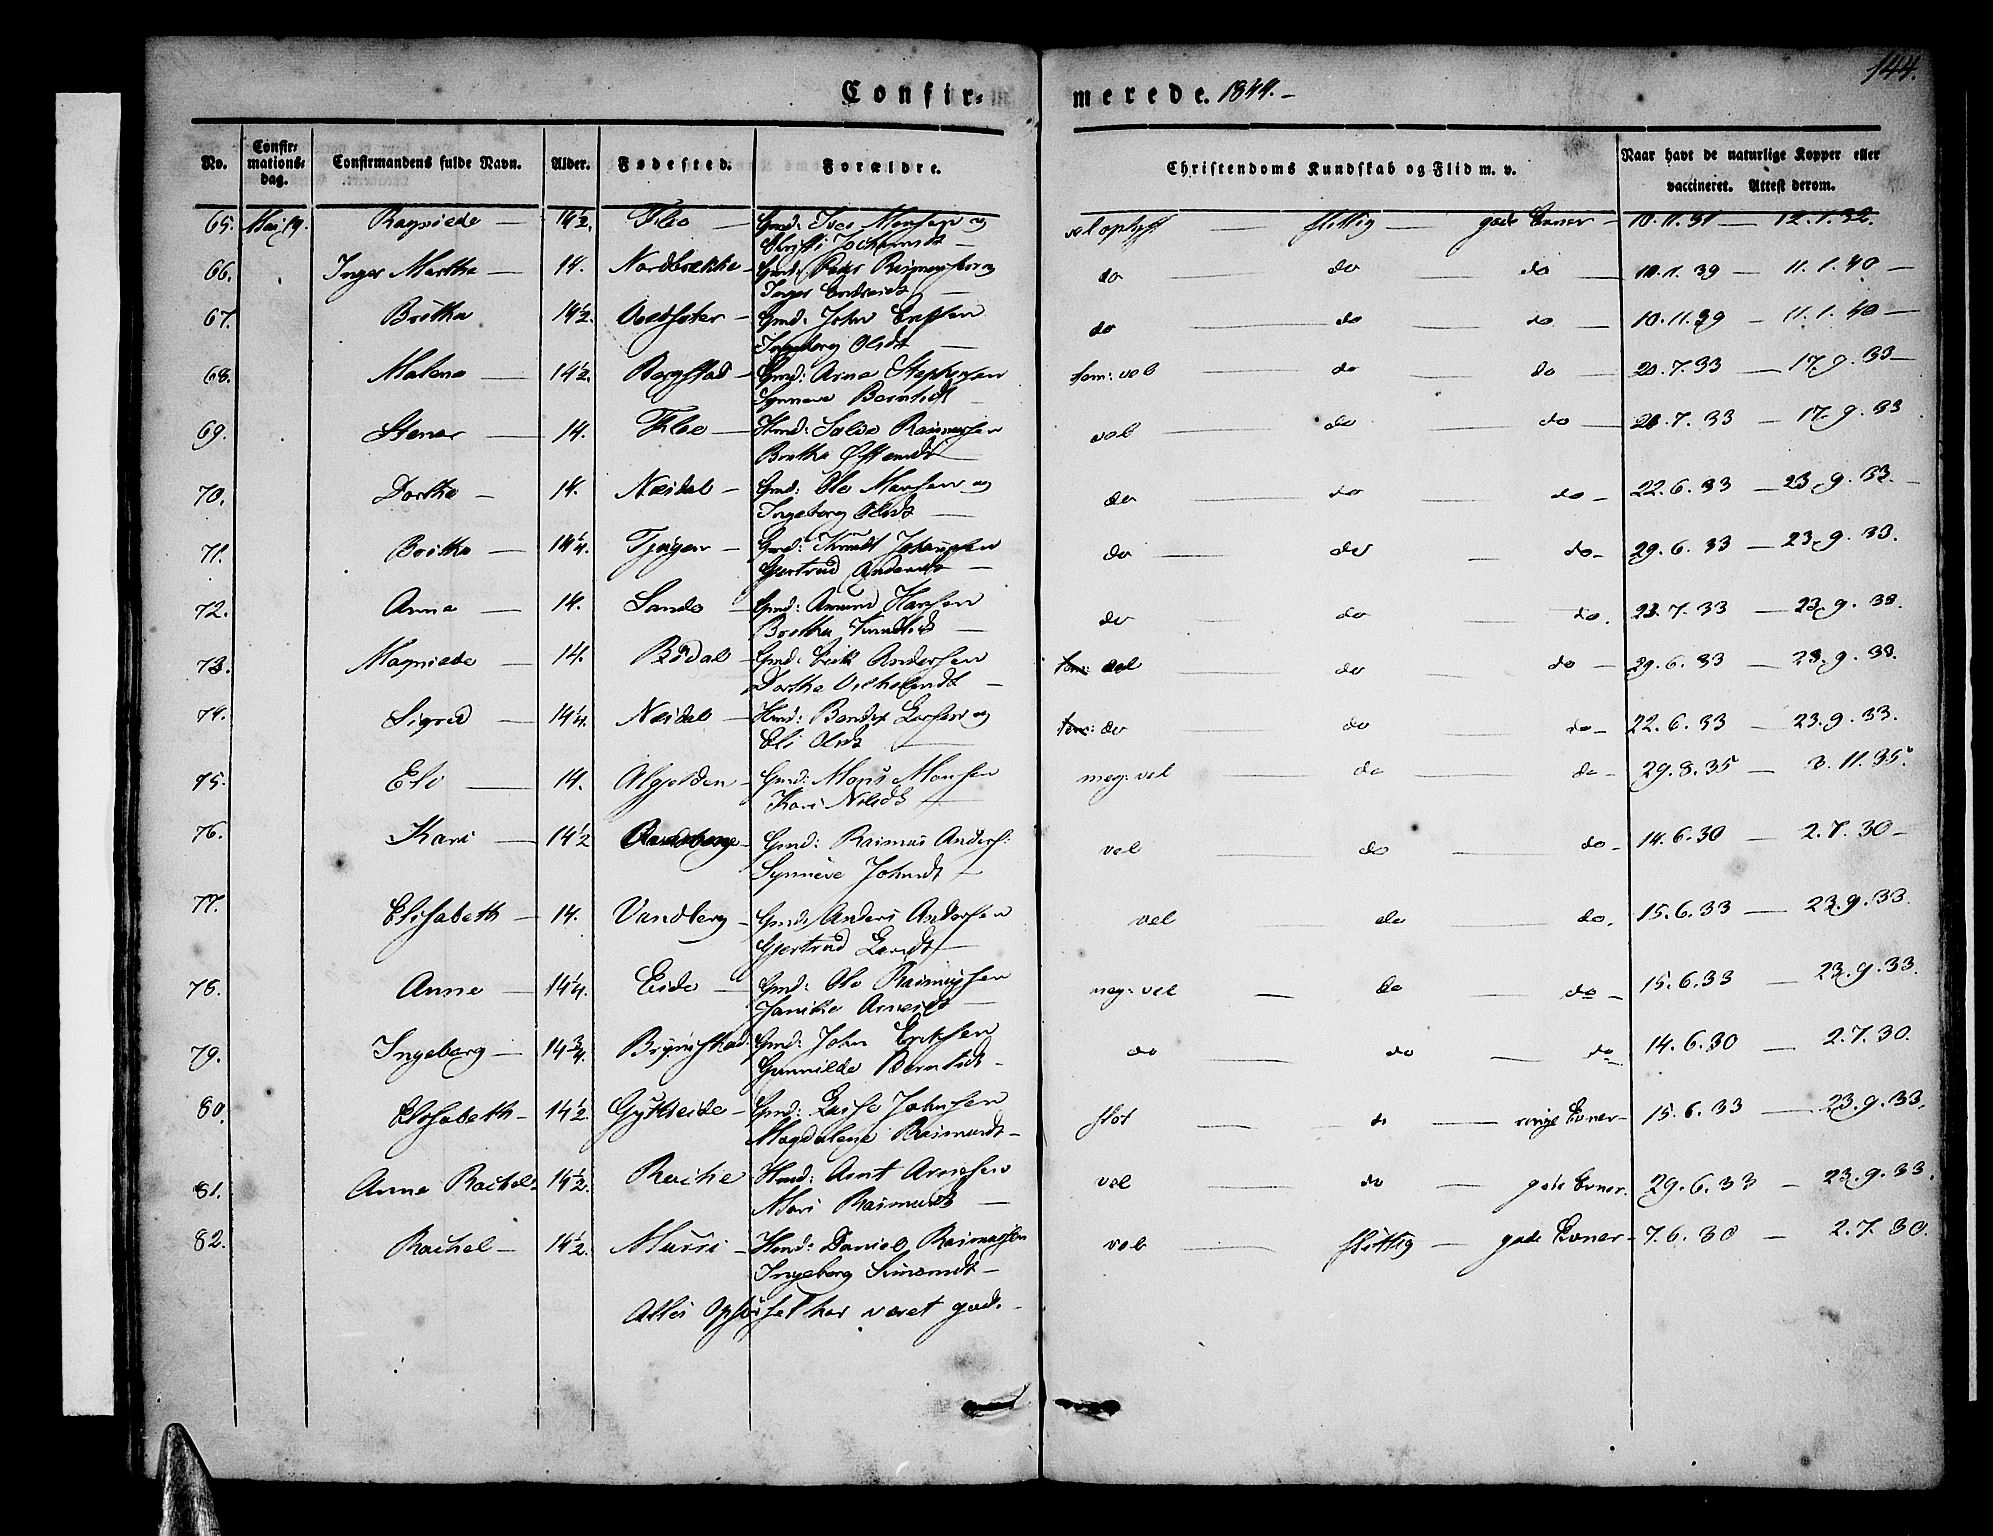 144.
Confir- merede. 1844.-
No. Confir-mations-dag. Confirmandens fulde Navn. Alder. Fødested. Forældre. Christendoms Kundskab og Flid m. v. Naar havt de naturlige Kopper eller vaccineret. Attest derom.
65. Mai 19. Ragnilde — 14½. Flo — Gmd: Iver Monsen og vel oplyst flittig — gode Evner — 10.11.31 — 12.1.32.
66. Inger Martha — 14. Nordbrække — Gmd: Peder Rasmussen og do — do — do — 10.1.39 — 11.1.40 —
67. Brithe 14½. — Gmd: John do — do — do — 10.11.39 — 11.1.40 —
Ingeborg Olsdt —
68. Malene — 14½. Bergstad — Gmd: Arne Stephensen tem: vel — do — do — 20.7.33 — 17.9.33 —
Synneve Berntsdt —
69. Stener — 14. Flo — Hmd: Salve Rasmussen vel — do — do — 20.7.33 — 17.9.33
Brithe
70. Dorthe — 14. Næsdal — Gmd: Ole Monsen og do — do — do — 22.6.33 — 23.9.33. —
Ingeborg Olsdt —
71. Brithe — 14¼. Tjugen — Gmd: Knudt Johannesen do — do — do — 29.6.33 — 23.9.33.
Gjertrud Andersdt —
72. Anne — 14. Sande — Gmd: Amund Hansen do — do — do. 23.7.33 — 23.9.33.
Brethe Knudtsdt —
73. Magnilde — 14. Bødal — Gmd: Erik Andersen vel — do — do — 29.6.33 — 23.9.33.
Dorthe
74. Sigrid — 14¼. Næsdal — Hmd: Bendix Larsen og do — do — do — 22.6.33 — 23.9.33.
Eli Olsdt —
75. Eli — 14. — Gmd: Mons Monsen meg: vel — do — do — 29.8.35 — 3.11.35.
Kari Nilsdt —
76. Kari — 14½ — Gmd: Rasmus Anders: vel — do — do — 14.6.30 — 2.7.30 —
Synneve Johnsdt —
77. Elisabeth — 14. Vandberg — Gmd: Anders Andersen vel — do — do. 15.6.33 — 23.9.33.
Gjertrud Larsdt —
78. Anne — 14¼. Eide — Gmd: Ole Rasmussen meg: vel — do — do — 15.6.33 — 23.9.33.
Janike Arnesdt —
79. Ingeborg — 14¾. Brynestad Gmd: John Eriksen do — do — do 14.6.30 — 2.7.30.
Gunnilde Berntsdt —
80. Elisabeth — 14½. Gytreeide — Gmd: Lasse Johnsen slet — do — ringe Evner — 15.6.33 — 23.9.33.
Magdalene Rasmusdt —
81. Anne Rachel — 14½. Rache Hmd: Arnt Arnesen vel — do — gode Evner. 29.6.33 — 23.9.33.
Mari Rasmusdt —
82. Rachel — 14½. Murri — Hmd: Daniel Rasmussen vel — flittig — gode Evner — 7.6.30 — 2.7.30.
Ingeborg Simonsdt —
Alles Opførsel har været god. —